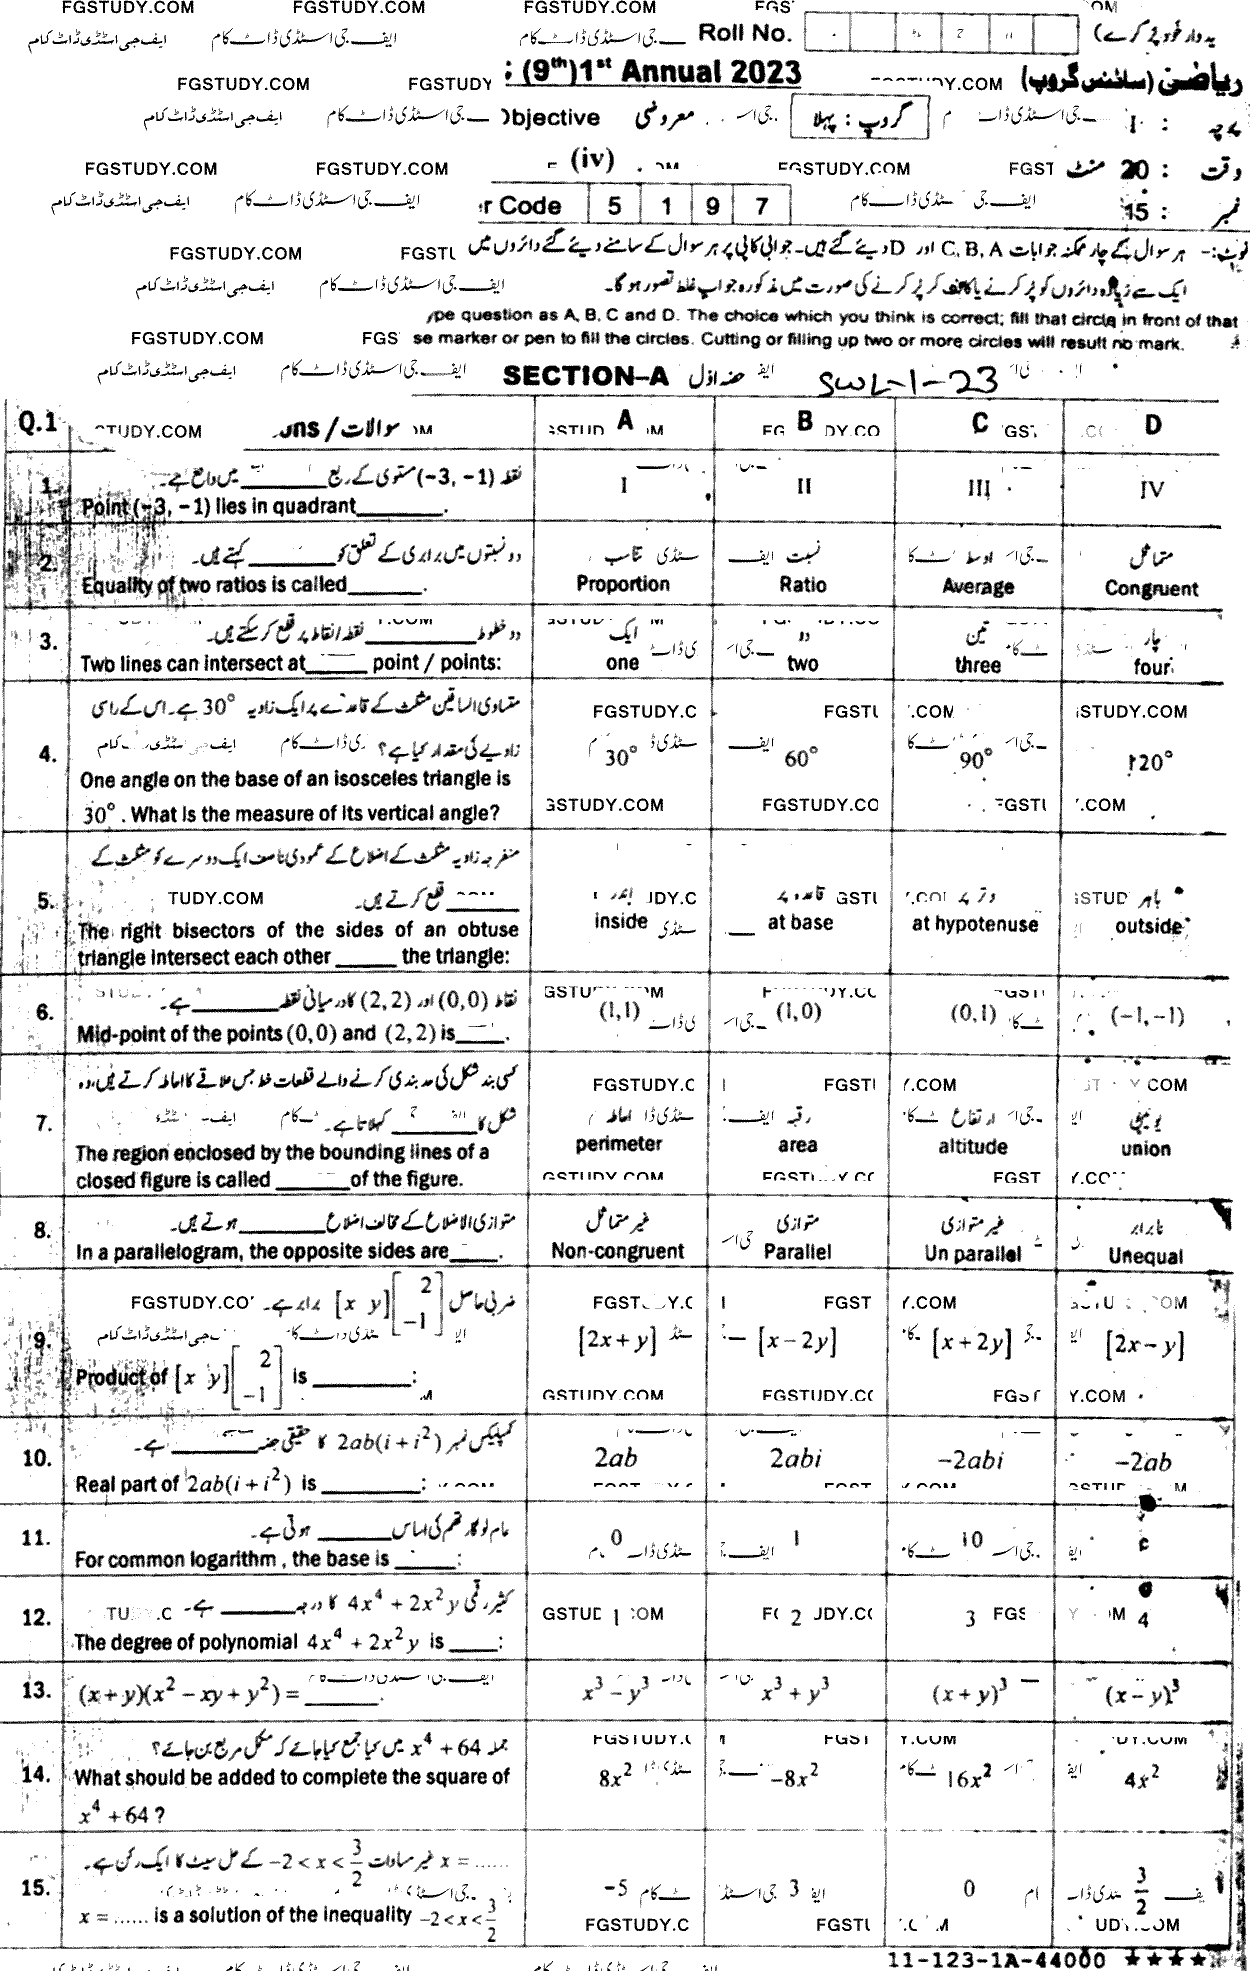 FGSTUDY.COM FGSTUDY.COM FGSTUDY.COM
Roll No.
ایف جی اسٹڈی ڈاٹ کام
(9th) 1st Annual 2023 ریاضی (سائنس گروپ)
FGSTUDY.COM FGSTUDY
Objective معروضی گروپ : پہلا پرچہ : I
FGSTUDY.COM FGSTUDY.COM (iv) FGSTUDY.COM وقت : 20 منٹ
Code 5 1 9 7 نمبر : 15
نوٹ:- ہر سوال کے چار ممکنہ جوابات C, B, A اور D دیئے گئے ہیں۔ جوابی کاپی پر ہر سوال کے سامنے دیئے گئے دائروں میں
FGSTUDY.COM
ایک سے زیادہ دائروں کو پُر کرنے یا کاٹ کر پُر کرنے کی صورت میں مذکورہ جواب غلط تصور ہو گا۔
question as A, B, C and D. The choice which you think is correct; fill that circle in front of that
FGSTUDY.COM marker or pen to fill the circles. Cutting or filling up two or more circles will result no mark.
SECTION–A حصہ اول SWL-1-23
Q.1 سوالات / A B C D
1. نقطہ (−3, −1) مستوی کے ربع ______ میں واقع ہے۔
Point (−3, −1) lies in quadrant______. I II III IV
2. دو نسبتوں میں برابری کے تعلق کو ______ کہتے ہیں۔ تناسب نسبت اوسط متماثل
Equality of two ratios is called______. Proportion Ratio Average Congruent
3. دو خطوط ______ نقطہ / نقاط پر قطع کر سکتے ہیں۔ ایک دو تین چار
Two lines can intersect at______ point / points: one two three four
4. متساوی الساقین مثلث کے قاعدے پر ایک زاویہ 30° ہے۔ اس کے راسی
زاویے کی مقدار کیا ہے؟ 30° 60° 90° 120°
One angle on the base of an isosceles triangle is
30° . What is the measure of its vertical angle?
5. منفرجہ زاویہ مثلث کے اضلاع کے عمودی ناصف ایک دوسرے کو مثلث کے
______ قطع کرتے ہیں۔ اندر قاعدہ پر وتر پر باہر
The right bisectors of the sides of an obtuse inside at base at hypotenuse outside
triangle intersect each other ______ the triangle:
6. نقاط (0,0) اور (2,2) کا درمیانی نقطہ ______ ہے۔
Mid-point of the points (0,0) and (2,2) is______. (1,1) (1,0) (0,1) (−1,−1)
7. کسی بند شکل کی حد بندی کرنے والے قطعات خط جس علاقے کا احاطہ کرتے ہیں، وہ
شکل کا ______ کہلاتا ہے۔ احاطہ رقبہ ارتفاع یونین
The region enclosed by the bounding lines of a perimeter area altitude union
closed figure is called ______of the figure.
8. متوازی الاضلاع کے مخالف اضلاع ______ ہوتے ہیں۔ غیر متماثل متوازی غیر متوازی نابرابر
In a parallelogram, the opposite sides are____. Non-congruent Parallel Un parallel Unequal
9. ضربی حاصل [x y] [2 −1] برابر ہے۔
Product of [x y] [2 −1] is ______: [2x + y] [x − 2y] [x + 2y] [2x − y]
10. کمپلیکس نمبر 2ab(i + i²) کا حقیقی حصہ ______ ہے۔
Real part of 2ab(i + i²) is ______: 2ab 2abi −2abi −2ab
11. عام لوگارتھم کی اساس ______ ہوتی ہے۔
For common logarithm , the base is ______: 0 1 10 e
12. کثیر رقمی 4x⁴ + 2x²y کا درجہ ______ ہے۔
The degree of polynomial 4x⁴ + 2x²y is ____: 1 2 3 4
13. (x + y)(x² − xy + y²) = ______. x³ − y³ x³ + y³ (x + y)³ (x − y)³
14. جملہ x⁴ + 64 میں کیا جمع کیا جائے کہ مکمل مربع بن جائے؟
What should be added to complete the square of 8x² −8x² 16x² 4x²
x⁴ + 64 ?
15. x = ...... غیر مساوات −2 < x < 3/2 کے حل سیٹ کا ایک رکن ہے۔
x = ...... is a solution of the inequality −2 < x < 3/2 −5 3 0 3/2
11-123-1A-44000 ★★★★